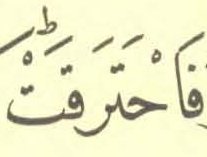 فَاحْتَرَقَتْؕ